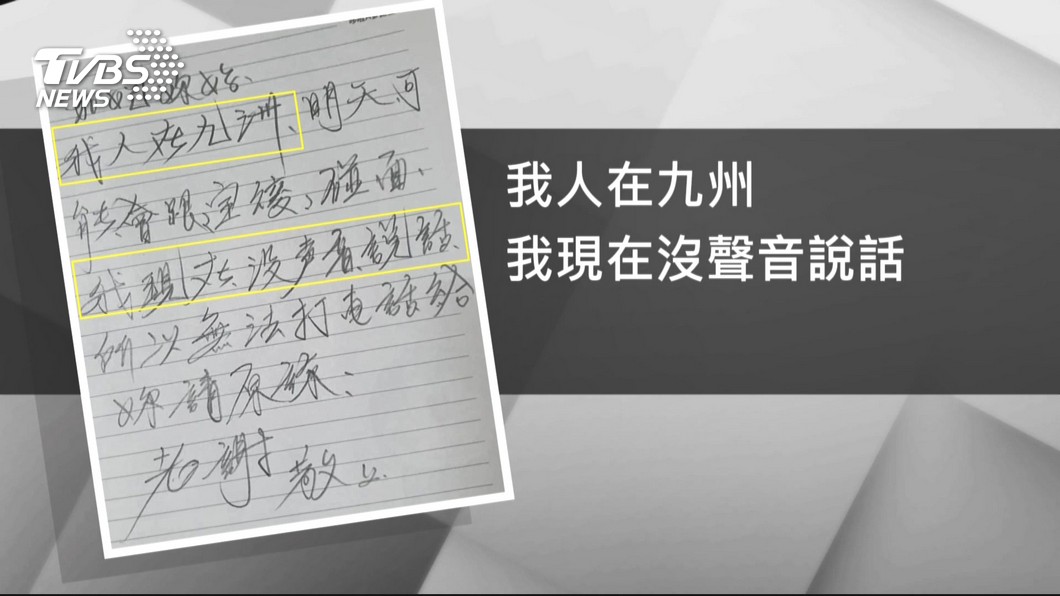 TVBS
NEWS
妳好、
我人在九洲、明天可
能會跟宝㛢、碰面、
我現在没声音説話
所以無法打电話給
妳請原諒：
老謝 敬上.
我人在九州
我現在沒聲音說話